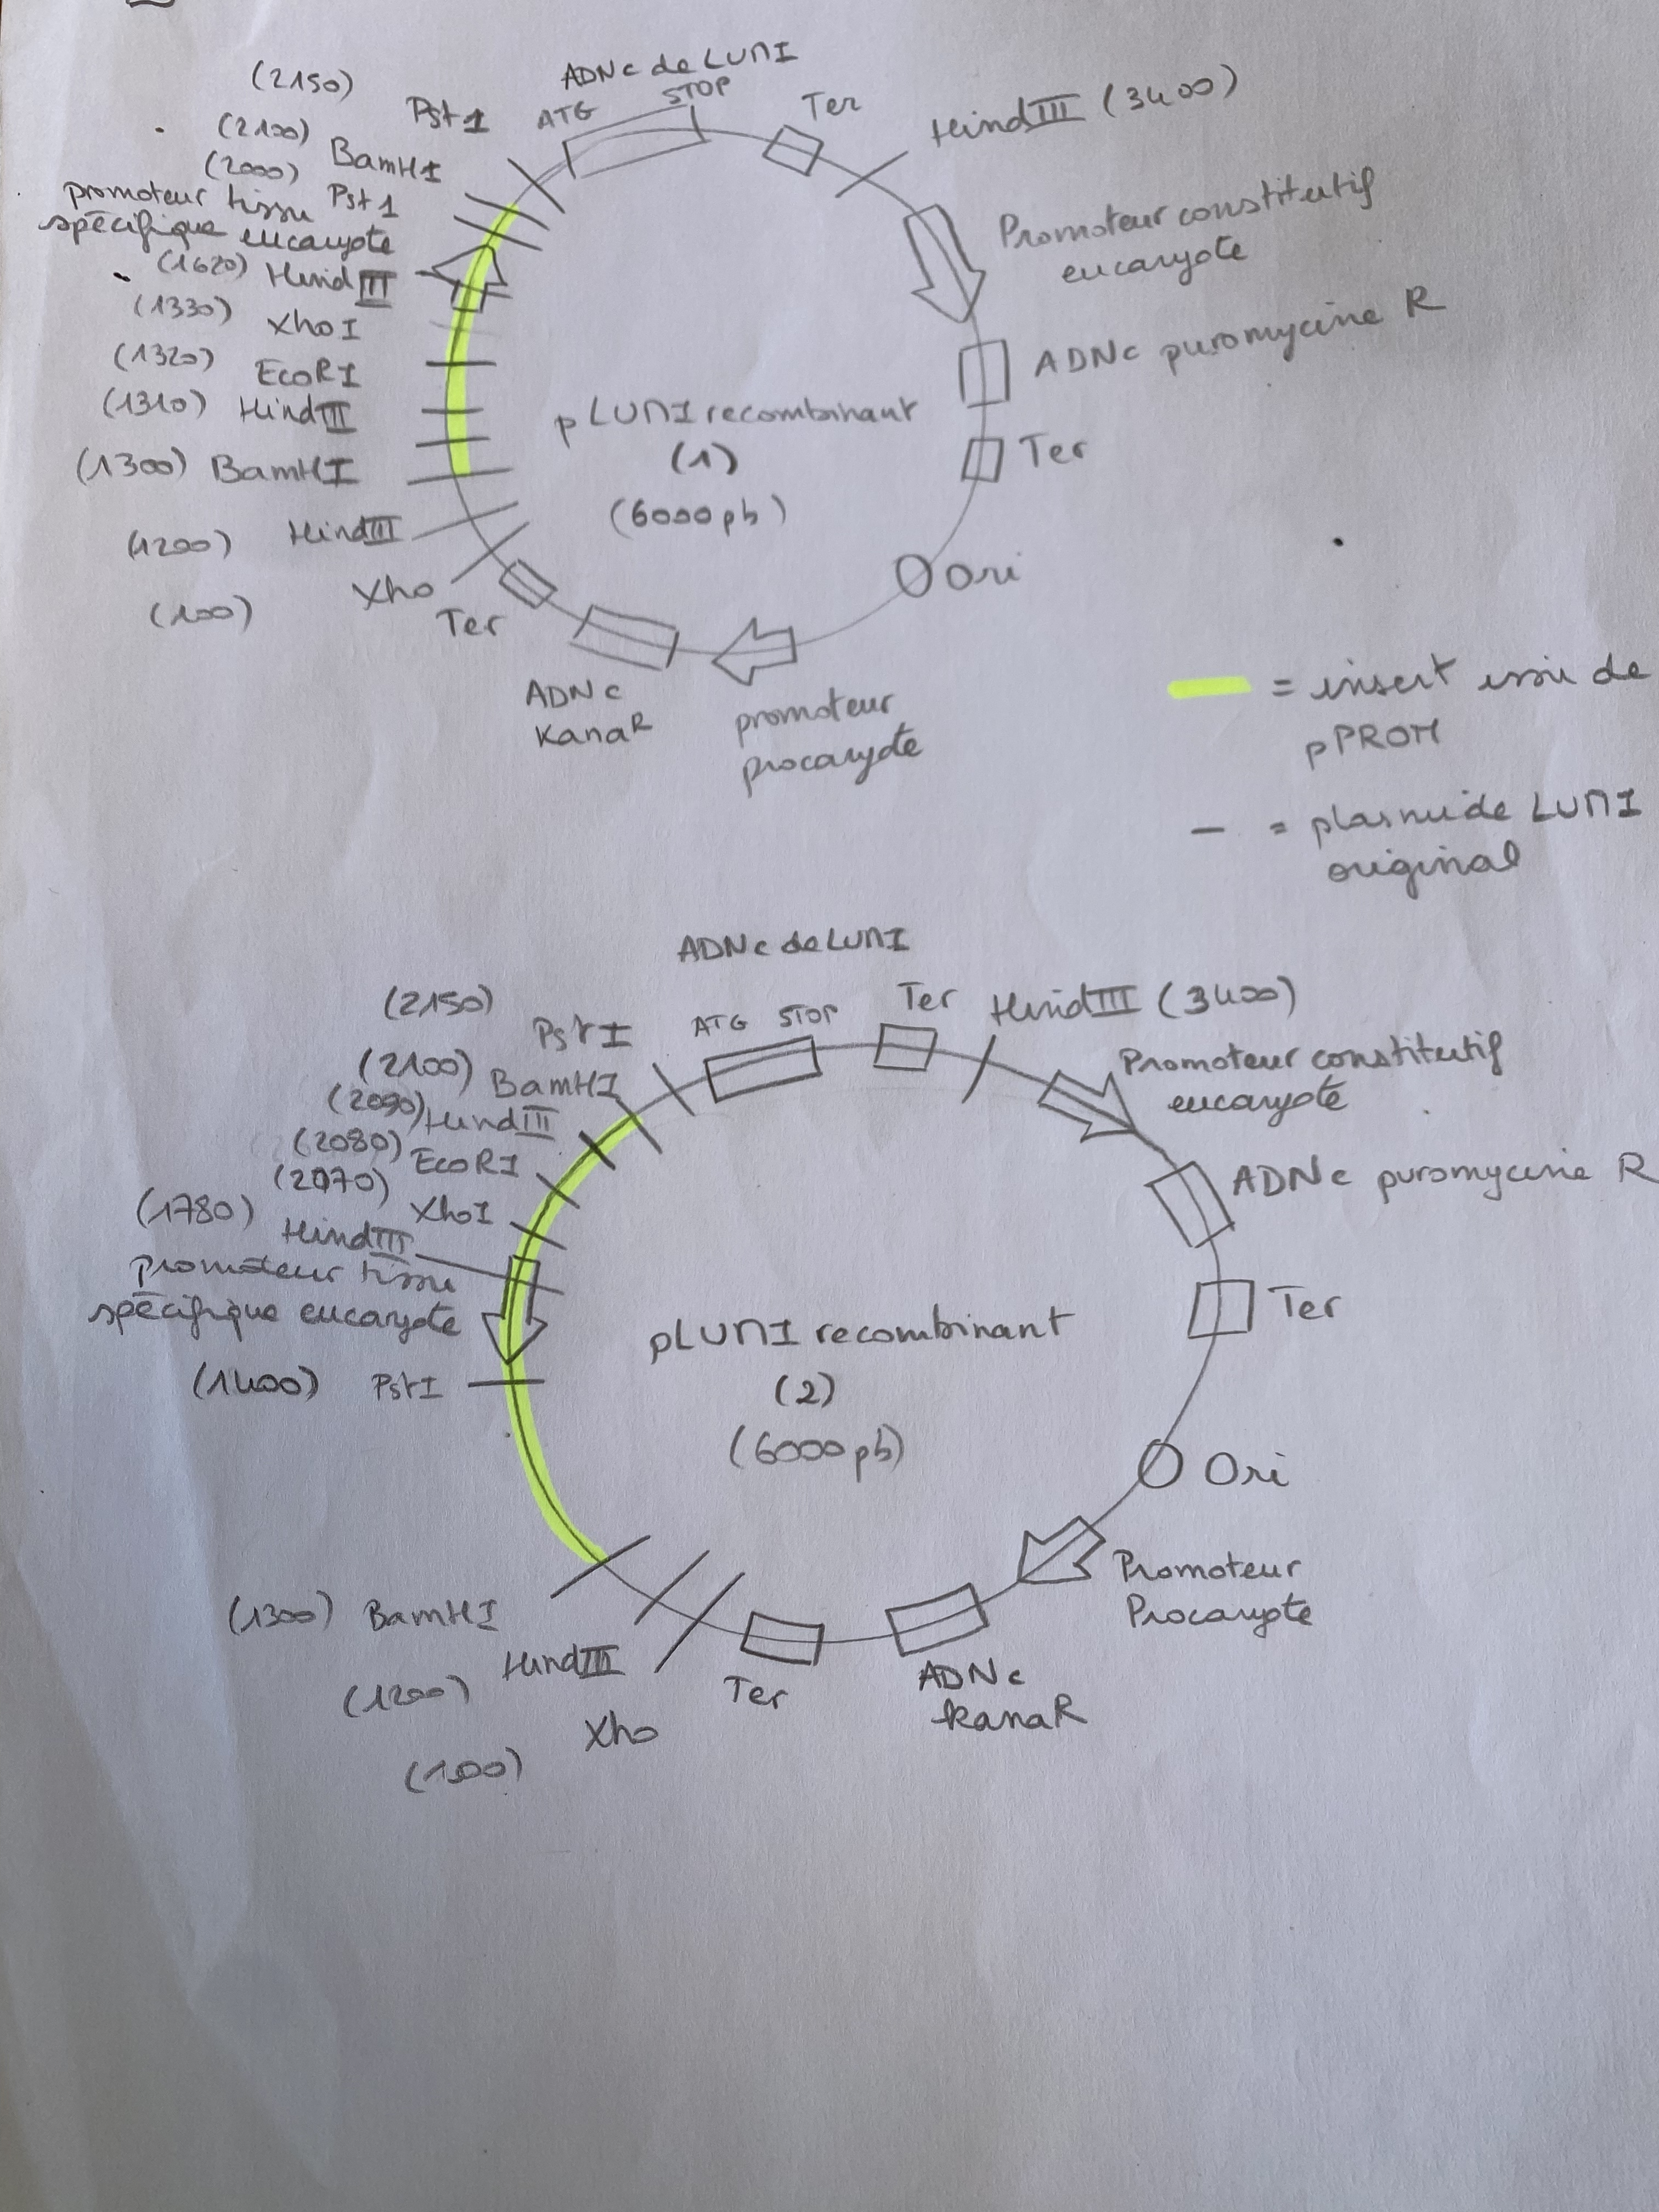 ADNc de LUNI
(2150)
Pst1
ATG
STOP
Ter
HindIII (3400)
(2100)
BamHI
(2000)
Pst1
promoteur tissu
spécifique eucaryote
(1620) HindIII
(1330) XhoI
(1320) EcoRI
(1310) HindIII
(1300) BamHI
(1200) HindIII
(100) Xho
Ter
ADNc
KanaR
promoteur
procaryote
Ori
Ter
ADNc puromycine R
Promoteur constitutif
eucaryote
pLUNI recombinant
(1)
(6000pb)
= insert issu de
pPROM
- = plasmide LUNI
original
ADNc de LUNI
(2150)
PstI
ATG STOP
Ter
HindIII (3400)
(2100) BamHI
(2090) HindIII
(2080) EcoRI
(2070) XhoI
(1780) HindIII
promoteur tissu
spécifique eucaryote
(1400) PstI
Promoteur constitutif
eucaryote
ADNc puromycine R
Ter
pLUNI recombinant
(2)
(6000pb)
Ori
Promoteur
Procaryote
(1300) BamHI
(1200) HindIII
(100) Xho
Ter
ADNc
kanaR